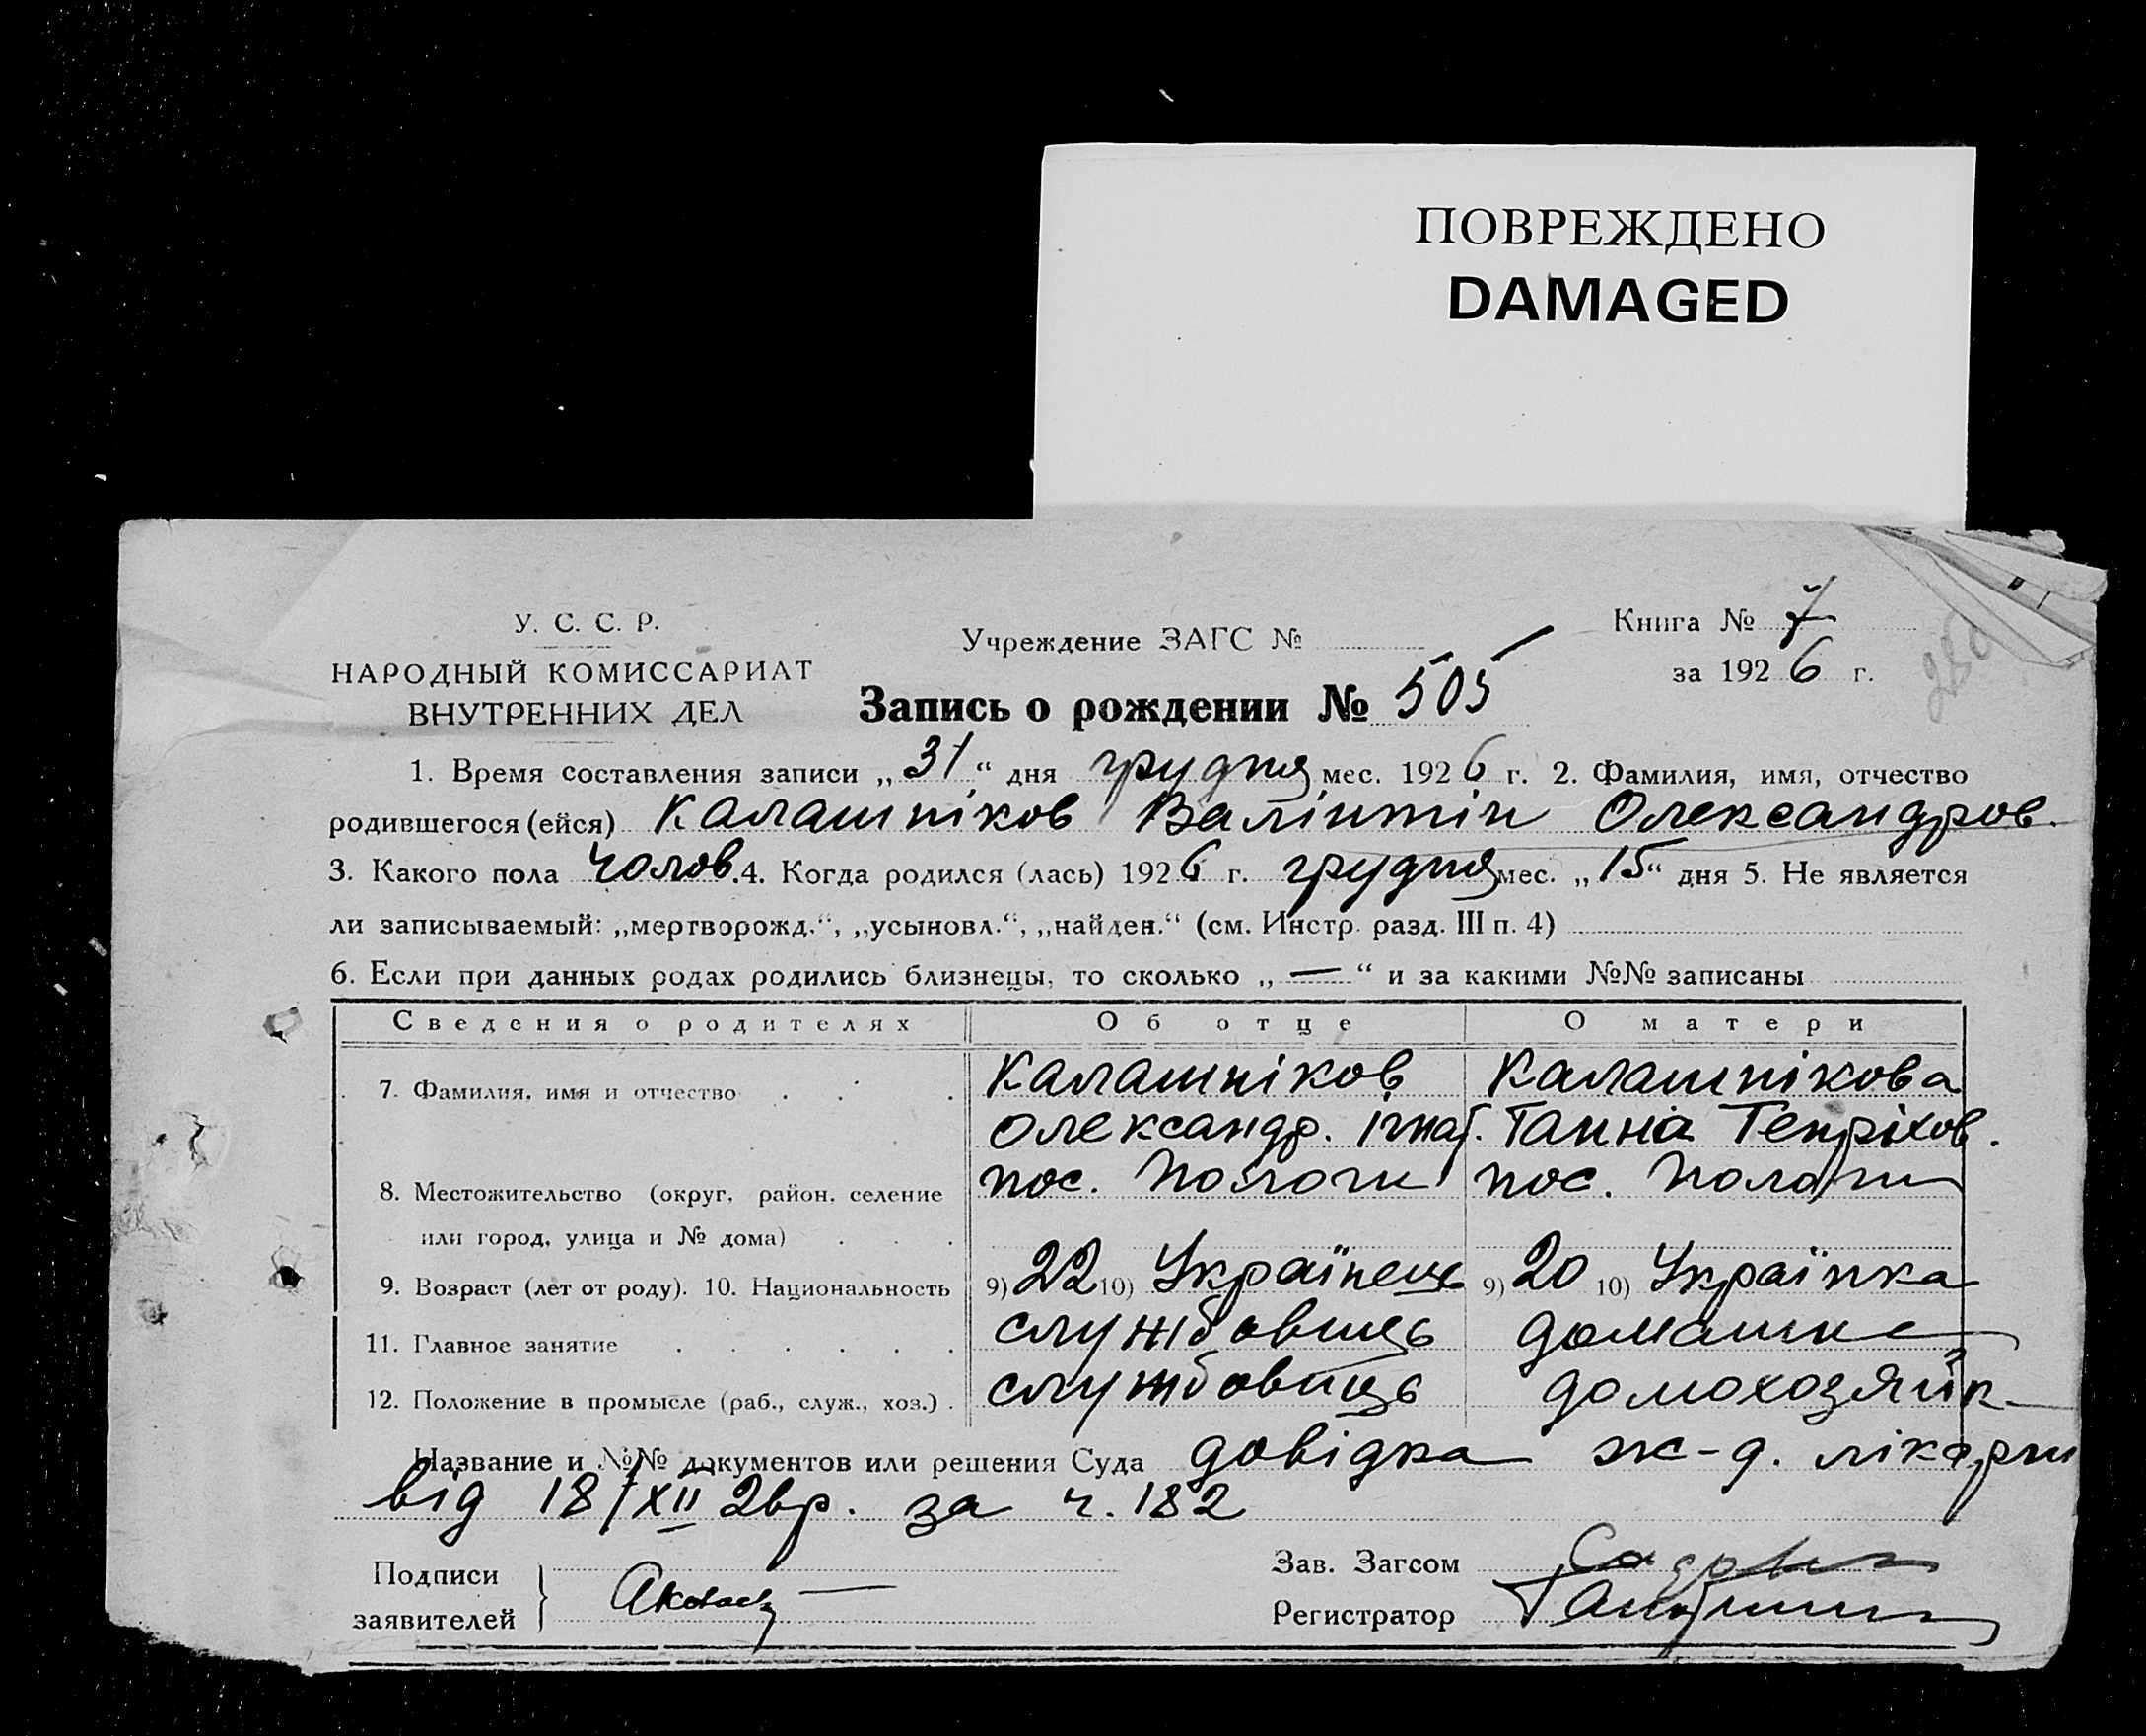 ПОВРЕЖДЕНО
DAMAGED
У. С. С. Р.
НАРОДНЫЙ КОМИССАРИАТ
ВНУТРЕННИХ ДЕЛ
Учреждение ЗАГС №
Книга № 7
за 1926 г.
Запись о рождении № 505
1. Время составления записи „31“ дня грудня мес. 1926 г. 2. Фамилия, имя, отчество
родившегося (ейся) Калашніков Валінтін Олександров.
3. Какого пола чолов. 4. Когда родился (лась) 1926 г. грудня мес. „15“ дня 5. Не является
ли записываемый: „мертворожд.“, „усыновл.“, „найден.“ (см. Инстр. разд. III п. 4)
6. Если при данных родах родились близнецы, то сколько „—“ и за какими №№ записаны
Сведения о родителях Об отце О матери
7. Фамилия, имя и отчество Калашніков Калашнікова
Олександр. Ігнат. Ганна Генріхов.
8. Местожительство (округ, район, селение пос. Пологи пос. Пологи
или город, улица и № дома)
9. Возраст (лет от роду). 10. Национальность 9) 22 10) Українець 9) 20 10) Українка
11. Главное занятие службовиць домашнє
12. Положение в промысле (раб., служ., хоз.) службовиць домохозяйк
Название и №№ документов или решения Суда довідка ж-д. лікарни
від 18/XII 26р. за ч. 182
Подписи
заявителей
Зав. Загсом
Регистратор